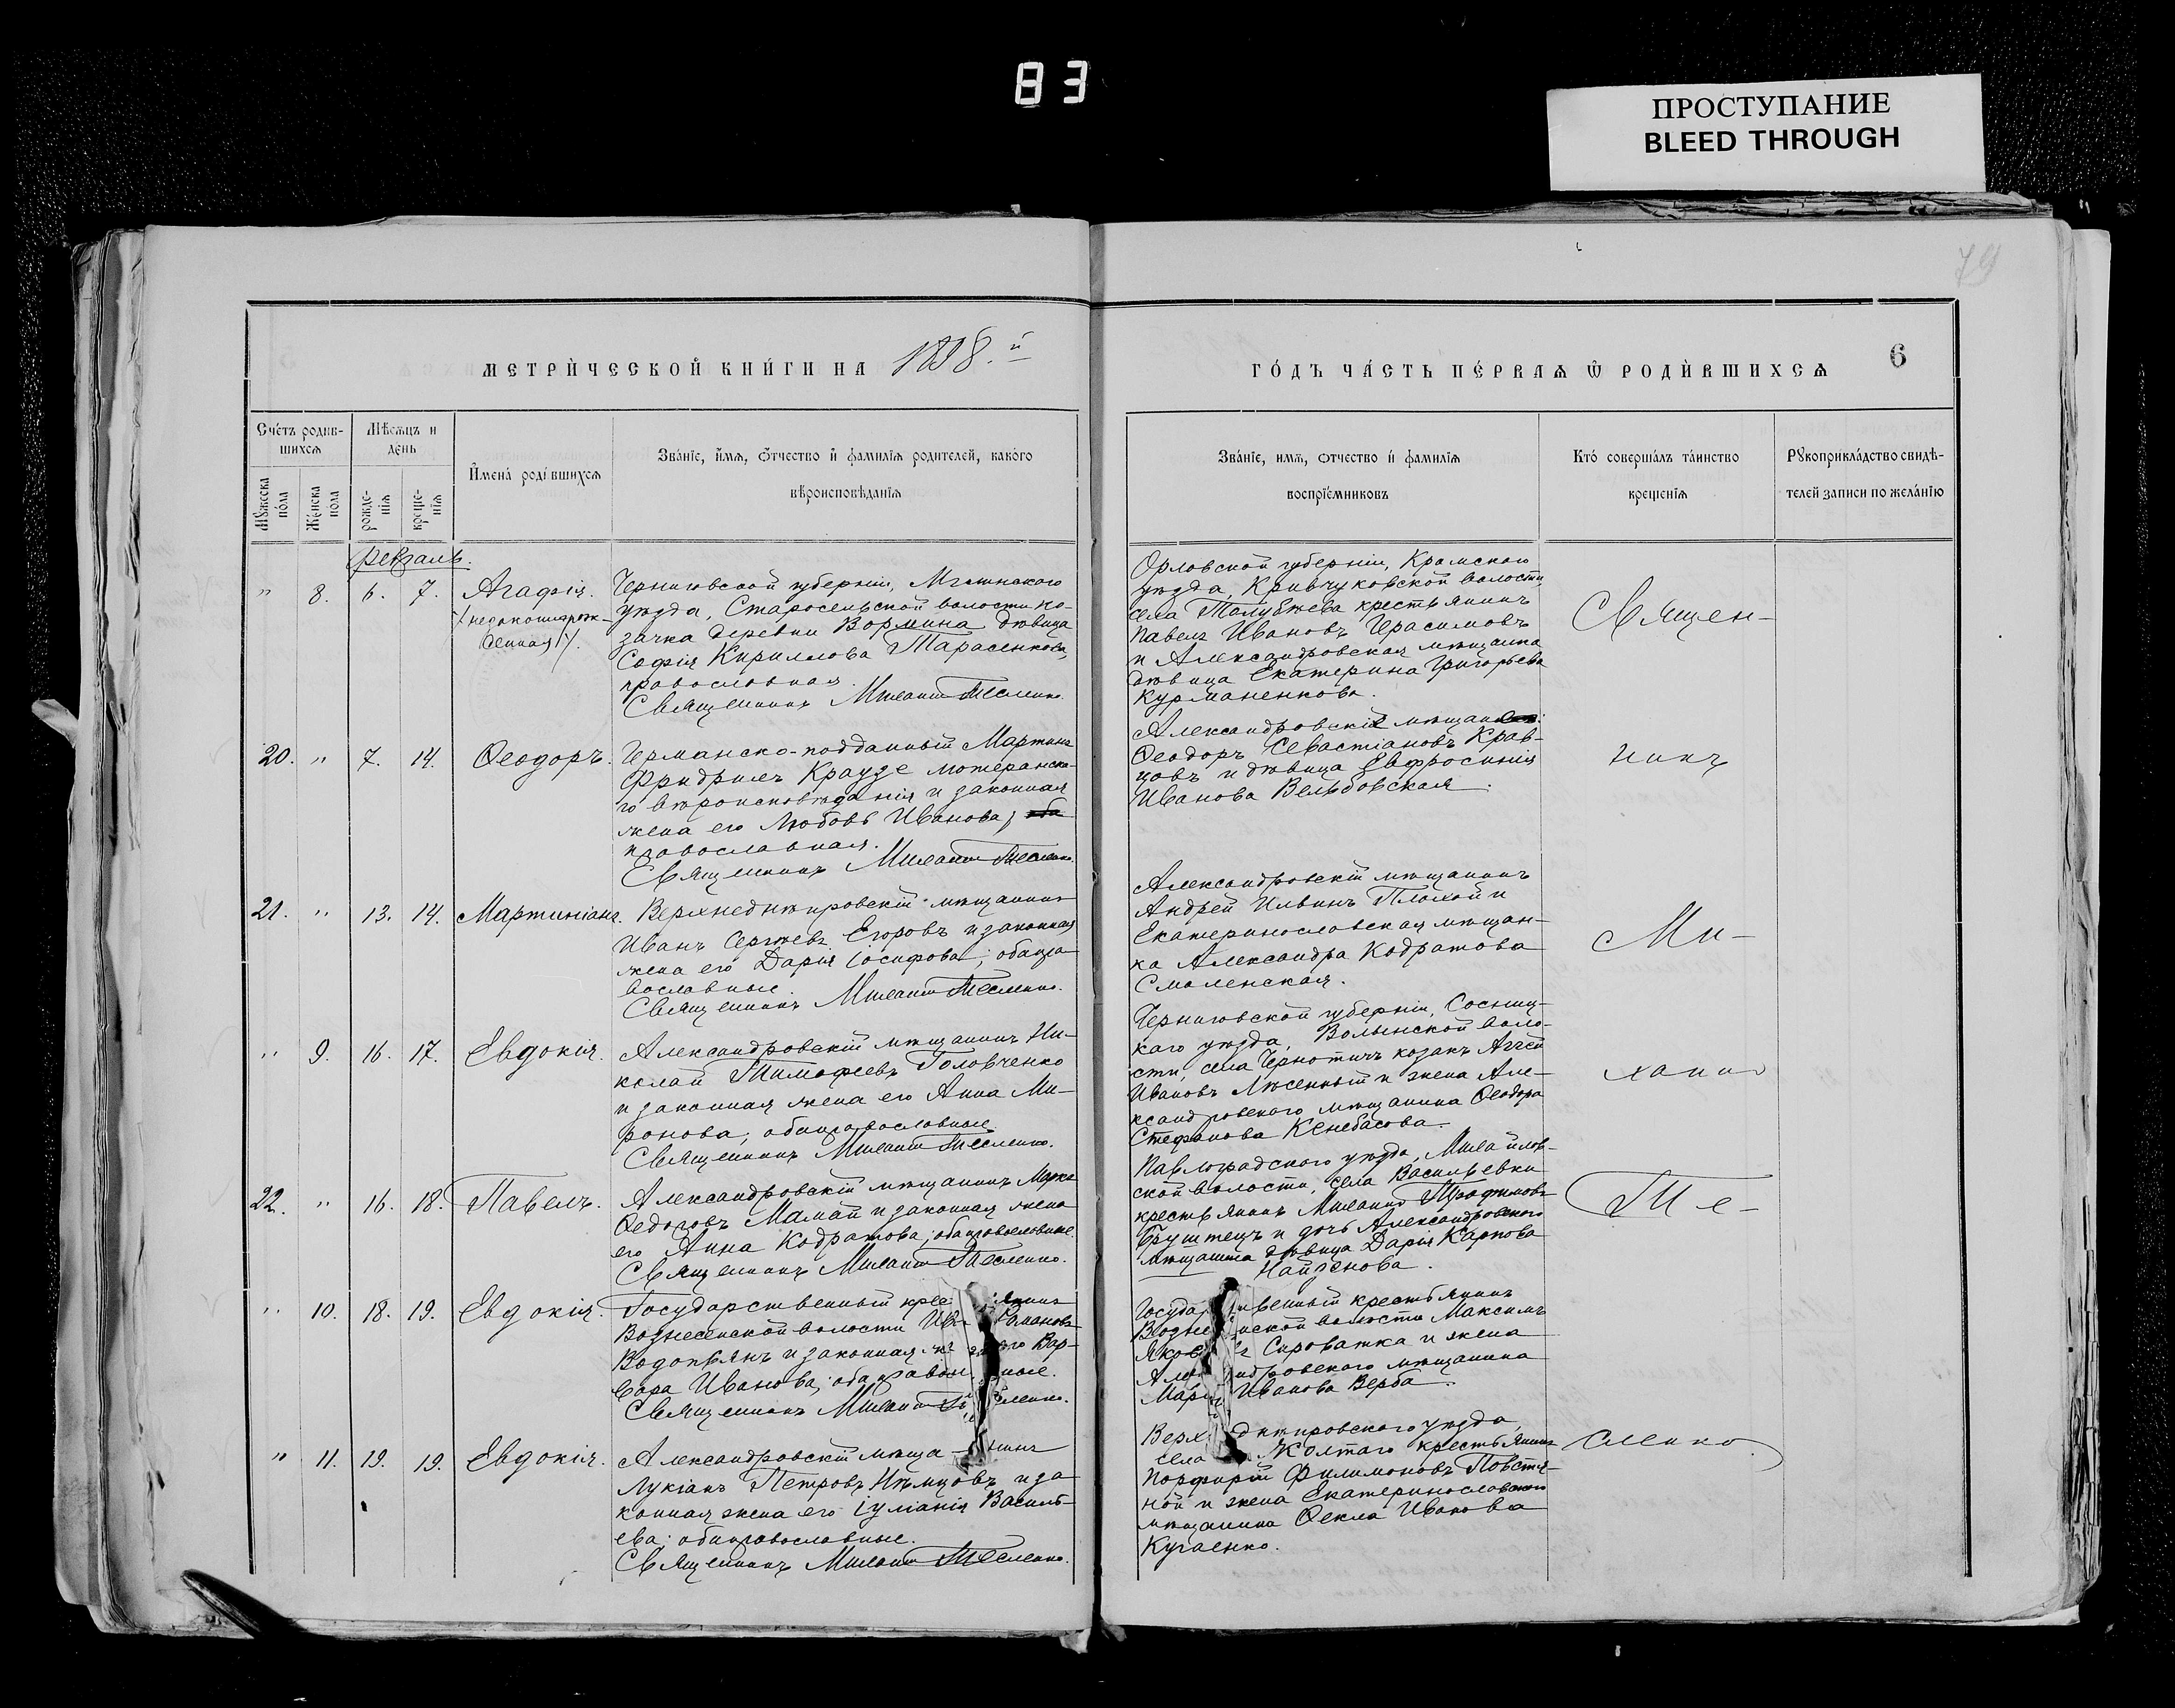 83
ПРОСТУПАНИЕ
BLEED THROUGH
79
МЕТРИ́ЧЕСКОЙ КНИ́ГИ НА 1898.й
ГО́ДЪ ЧА́СТЬ ПЕ́РВАѦ Ѿ РОДИ́ВШИХСѦ
6
Сче́тъ родив-
шихсѧ
Мѣ́сѧцъ и
де́нь
Мꙋ́жеска
по́ла
Же́нска
по́ла
рожде-
нїѧ
креще-
нїѧ
Имена̀ роди́вшихсѧ
Зва́нїе, и́мѧ, ѻ́тчество и҆ фамилїѧ родителей, како́го
вѣроисповѣ́данїѧ
Зва́нїе, имѧ, ѻтчество и́ фамилїѧ
воспрїе́мниковъ
Кто̀ соверша́лъ та́инство
креще́нїѧ
Рꙋкоприкла́дство свидѣ́-
телей записи по жела́нїю
Февраль.
" 8. 6. 7. Агафія.
(незаконнорож-
денная).
Черниговской губерніи, Мглинскаго
уѣзда, Старосельской волости ко-
зачка деревни Вормина дѣвица
Софія Кириллова Тарасенкова,
православная.
Священникъ Михаилъ Тесленко.
Орловской губерніи, Кромского
уѣзда, Кривчуковской волости
села Талубѣева крестьянинъ
Павелъ Ивановъ Герасимовъ
и Александровская мѣщанка
дѣвица Екатерина Григорьева
Курманенкова.
Священ-
20. " 7. 14. Ѳеодоръ.
Германско-подданный Мартинъ
Фридрихъ Краузе лютеранска-
го вѣроисповѣданія и законная
жена его Любовь Иванова, оба
православная.
Священникъ Михаилъ Тесленко.
Александровскіе мѣщане:
Ѳеодоръ Севастіановъ Крав-
цовъ и дѣвица Евфросинія
Иванова Вельбовская.
никъ
21. " 13. 14. Мартиніанъ.
Верхнеднѣпровскій мѣщанинъ
Иванъ Сергѣевъ Егоровъ и законная
жена его Дарія Іосифова; оба пра-
вославные.
Священникъ Михаилъ Тесленко.
Александровскій мѣщанинъ
Андрей Ильинъ Плохой и
Екатеринославская мѣщан-
ка Александра Кодратова
Смоленская.
Ми-
" 9. 16. 17. Евдокія.
Александровскій мѣщанинъ Ни-
колай Тимофеевъ Головченко
и законная жена его Анна Ми-
ронова; оба православные.
Священникъ Михаилъ Тесленко.
Черниговской губерніи, Сосниц-
каго уѣзда, Волынской воло-
сти, села Чернотичъ козакъ Аггей
Ивановъ Лѣсенный и жена Але-
ксандровского мѣщанина Ѳеодора
Стефанова Кенебасова.
хаилъ
22. " 16. 18. Павелъ.
Александровскій мѣщанинъ Марко
Ѳедоровъ Мамай и законная жена
его Анна Кодратова; оба православные.
Священникъ Михаилъ Тесленко.
Павлоградского уѣзда, Михайлов-
ской волости, села Васильевки
крестьянинъ Михаилъ Трофимовъ
Бруштецъ и дочь Александровского
мѣщанина дѣвица Дарія Карпова
Найденова.
Те-
" 10. 18. 19. Евдокія.
Государственный крес янинъ
Вознесенской волости Ив Романовъ
Водопьянъ и законная же его Вар-
вара Иванова; оба правос ные.
Священникъ Михаилъ Тесленко.
Государственный крестьянинъ
Вознесенской волости Максимъ
Яковлевъ Сыроватка и жена
Александровского мѣщанина
Марія Иванова Верба.
" 11. 19. 19. Евдокія.
Александровскій мѣща-нинъ
Лукіанъ Петровъ Нѣмцовъ и за
конная жена его Іуліанія Василь-
ева; оба православные.
Священникъ Михаилъ Тесленко.
Верхнеднѣпровского уѣзда,
села Жолтаго крестьянинъ
Порфирій Филимоновъ Повстя-
ной и жена Екатеринославского
мѣщанина Ѳекла Иванова
Кугаенко.
сленко